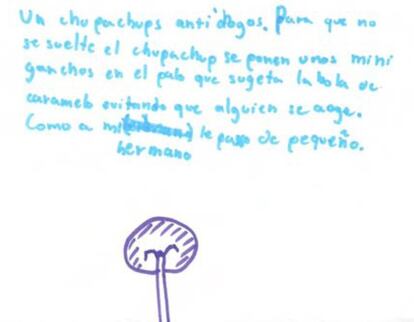 Un chupachups anti'dogos. Para que no
se suelte el chupachup se ponen unos mini
ganchos en el palo que sugeta la bola de
caramelo evitando que alguien se aoge.
Como a mi le paso de pequeño.
hermano